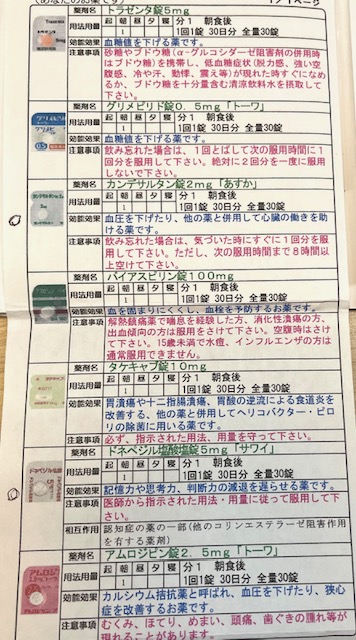 薬剤名 トラゼンタ錠5mg
用法用量 起 朝 昼 夕 寝 分1 朝食後
1 1回1錠 30日分 全量30錠
効能効果 血糖値を下げる薬です。
注意事項 砂糖やブドウ糖(α-グルコシダーゼ阻害剤の併用時
はブドウ糖)を携帯し、低血糖症状(脱力感、強い空
腹感、冷や汗、動悸、震え等)が現れた時すぐになめ
るか、ブドウ糖を十分量含む清涼飲料水を摂取して下
さい。
薬剤名 グリメピリド錠0.5mg「トーワ」
用法用量 起 朝 昼 夕 寝 分1 朝食後
1 1回1錠 30日分 全量30錠
効能効果 血糖値を下げる薬です。
注意事項 飲み忘れた場合は、1回とばして次の服用時間に1
回分を服用して下さい。絶対に2回分を一度に服用
しないで下さい。
薬剤名 カンデサルタン錠2mg「あすか」
用法用量 起 朝 昼 夕 寝 分1 朝食後
1 1回1錠 30日分 全量30錠
効能効果 血圧を下げたり、他の薬と併用して心臓の働きを助
ける薬です。
注意事項 飲み忘れた場合は、気づいた時にすぐに1回分を服
用して下さい。ただし、次の服用時間まで8時間以
上空けて下さい。
薬剤名 バイアスピリン錠100mg
用法用量 起 朝 昼 夕 寝 分1 朝食後
1 1回1錠 30日分 全量30錠
効能効果 血を固まりにくくし、血栓を予防するお薬です。
注意事項 解熱鎮痛薬で喘息を経験した方、消化性潰瘍の方、
出血傾向の方は服用をさけて下さい。空腹時はさけ
て下さい。15歳未満で水痘、インフルエンザの方は
通常服用できません。
薬剤名 タケキャブ錠10mg
用法用量 起 朝 昼 夕 寝 分1 朝食後
1 1回1錠 30日分 全量30錠
効能効果 胃潰瘍や十二指腸潰瘍、胃酸の逆流による食道炎を
改善する、他の薬と併用してヘリコバクター・ピロ
リの除菌に用いる薬です。
注意事項 必ず、指示された用法、用量を守って下さい。
薬剤名 ドネペジル塩酸塩錠5mg「サワイ」
用法用量 起 朝 昼 夕 寝 分1 朝食後
1 1回1錠 30日分 全量30錠
効能効果 記憶力や思考力、判断力の減退を遅らせる薬です。
注意事項 医師から指示された用法・用量に従って服用して下
さい。
相互作用 認知症の薬の一部(他のコリンエステラーゼ阻害作用
を有する薬剤)
薬剤名 アムロジピン錠2.5mg「トーワ」
用法用量 起 朝 昼 夕 寝 分1 朝食後
1 1回1錠 30日分 全量30錠
効能効果 カルシウム拮抗薬と呼ばれ、血圧を下げたり、狭心
症を改善するお薬です。
注意事項 むくみ、ほてり、めまい、頭痛、歯ぐきの腫れ等が
現れることがあります。